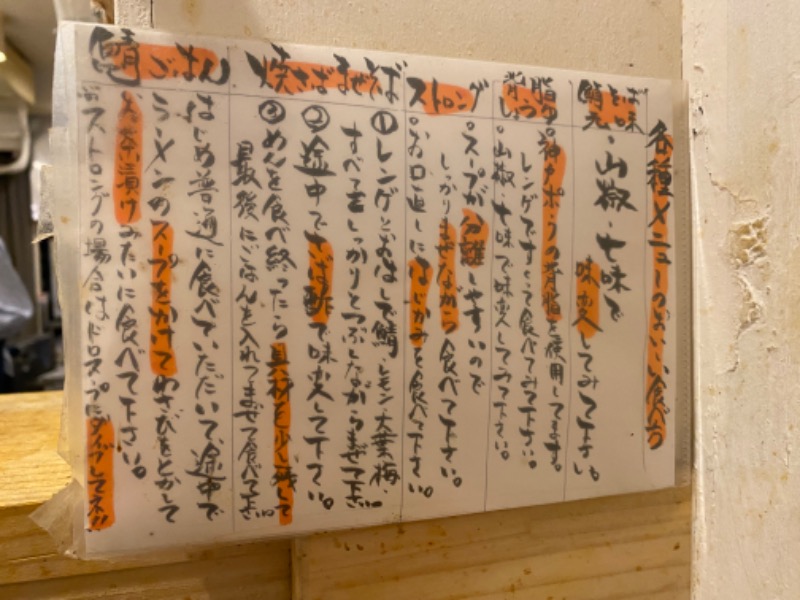 各種メニューのおいしい食べ方
鯖だし
山椒・七味で
味変してみて下さい。
背脂
神戸ポークの背脂を使用してます。
レンゲですくって食べてみて下さい。
山椒、七味で味変してみて下さい。
ストロング
スープが分離しやすいので
しっかりまぜながら食べて下さい。
お口直しにはじかみを食べて下さい。
焼さばまぜそば
①レンゲとおはしで鯖、レモン、大葉、梅、
すべてをしっかりとつぶしながらまぜて下さい
②途中でさば酢で味変して下さい。
③めんを食べ終ったら具材を少し残して
最後にごはんを入れつまぜて食べて下さい
鯖ごはん
はじめ普通に食べていただいて、途中で
ラーメンのスープをかけてわさびをとかして
お茶漬けみたいに食べて下さい。
※ストロングの場合はドロスープにダイブしてネ!!